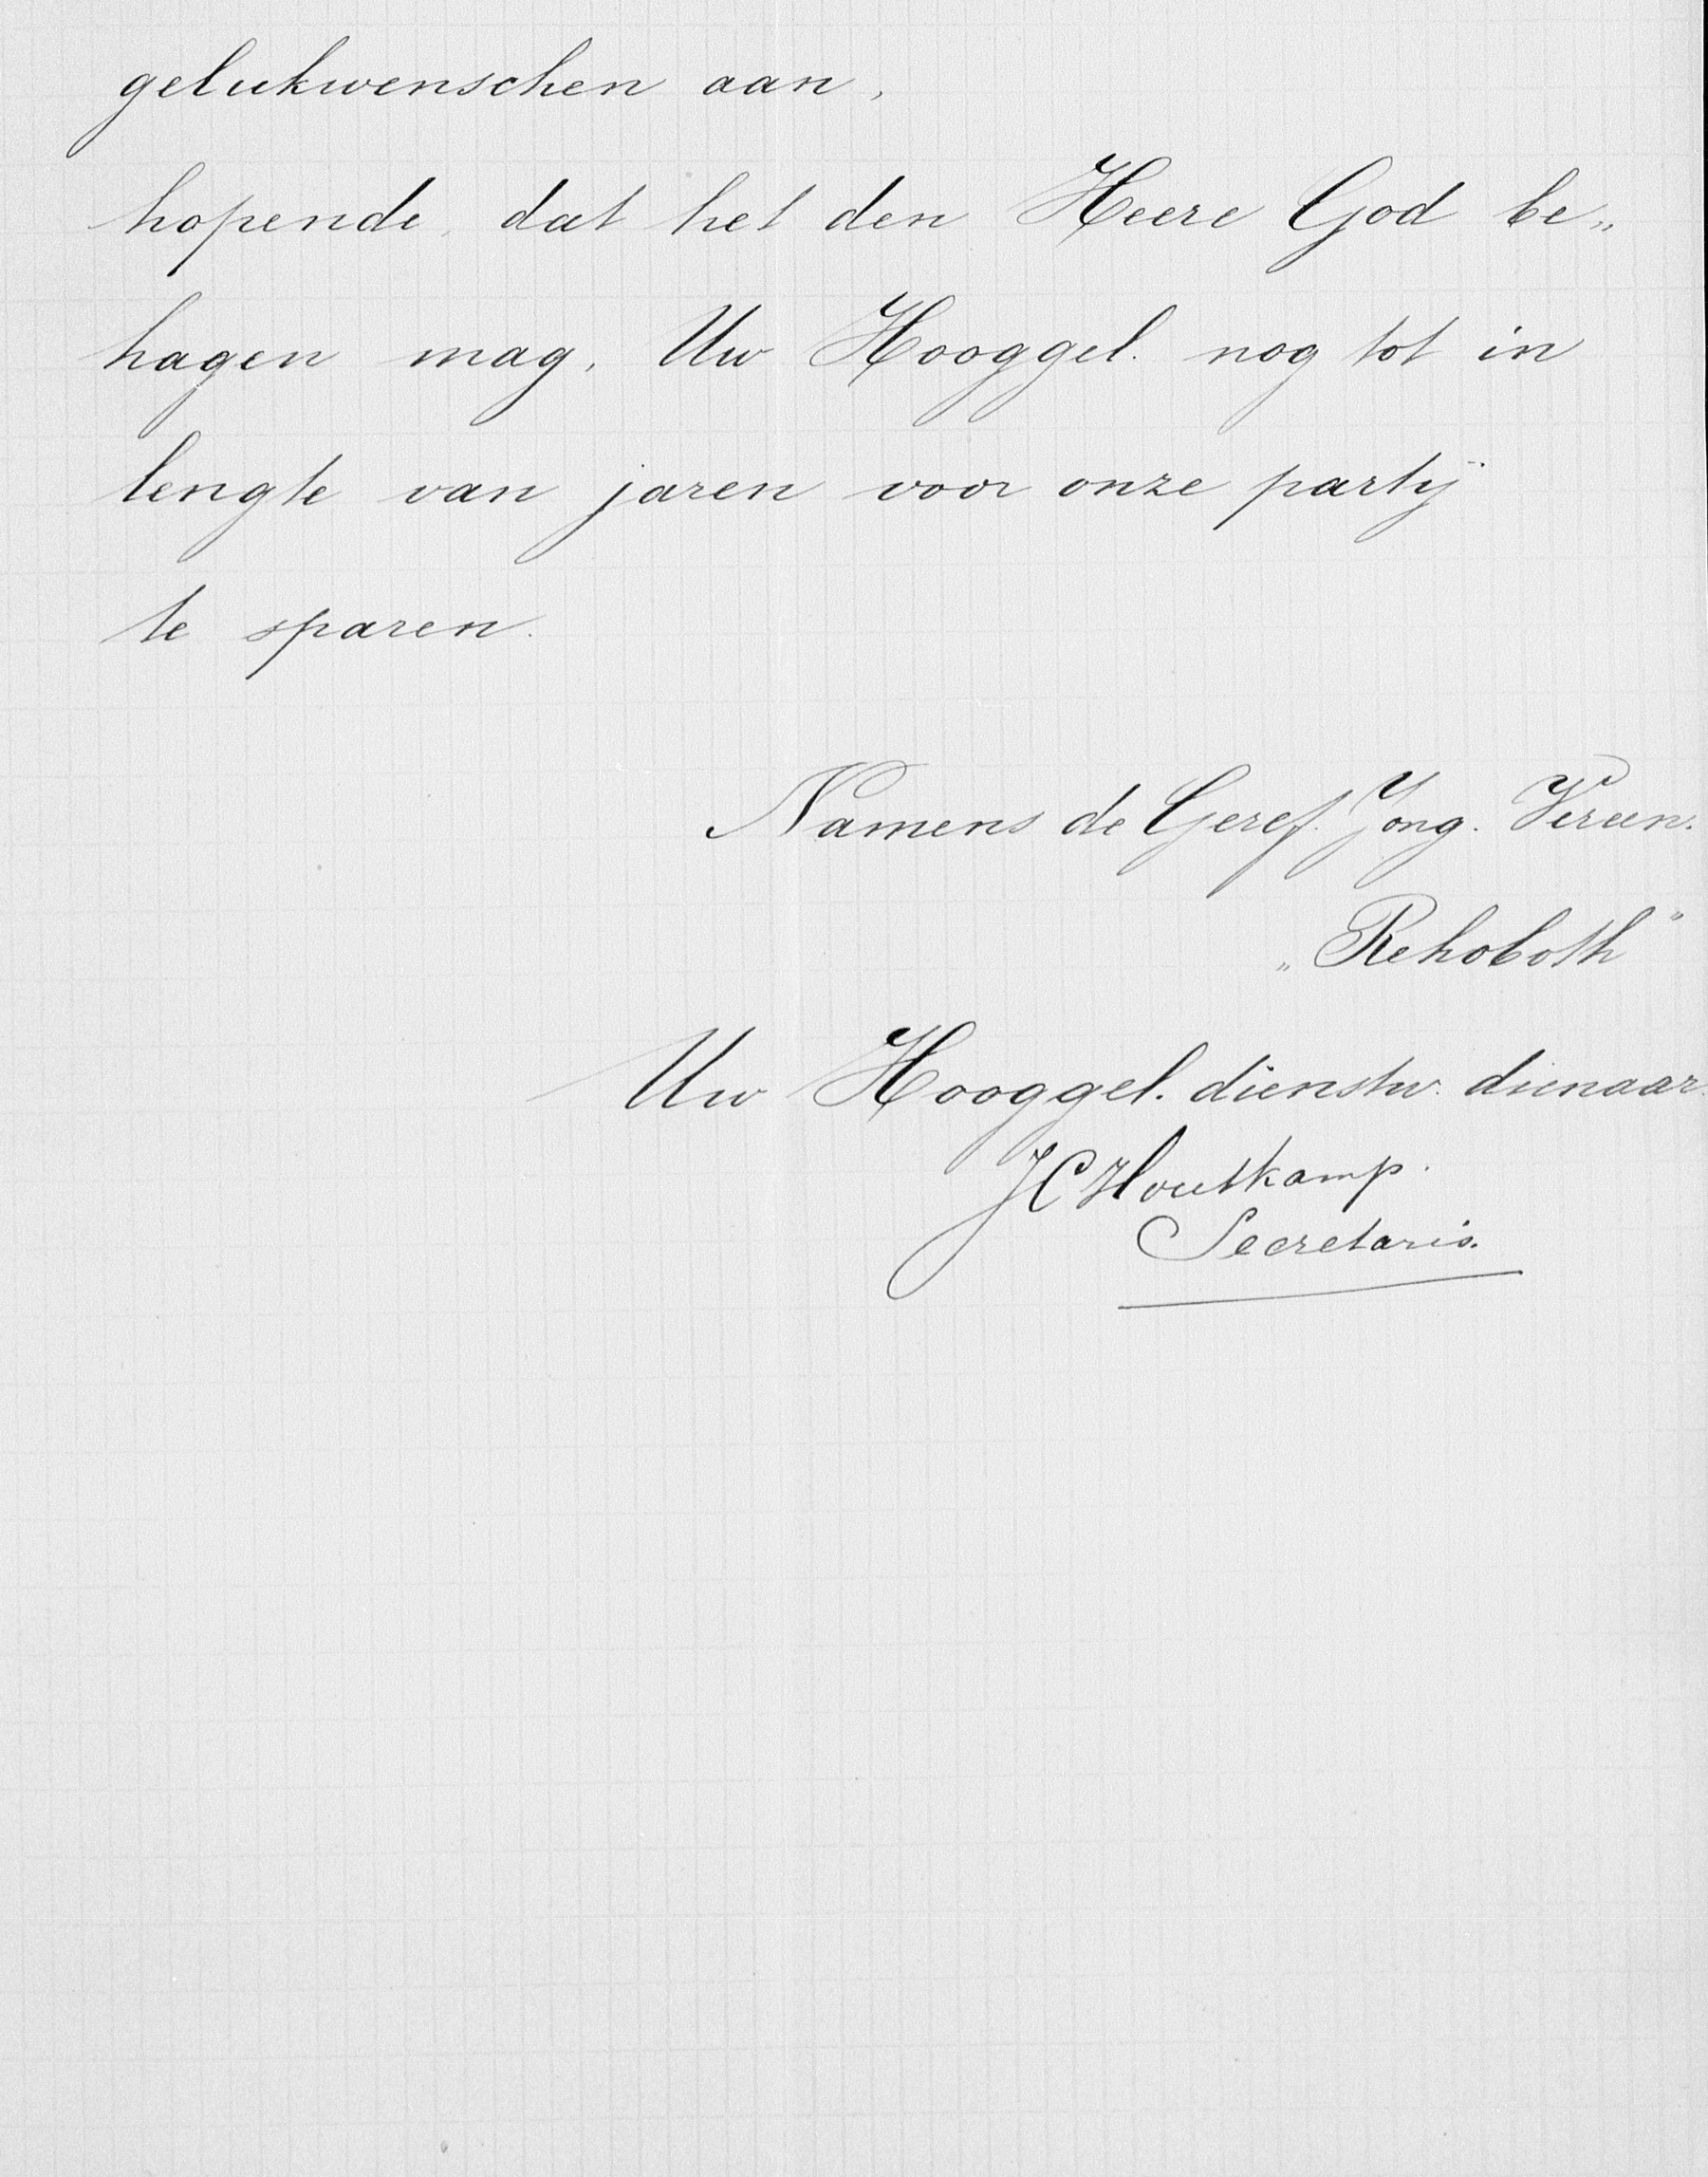 gelukwenschen aan,
hopende, dat het den Heere God be„
hagen mag, Uw Hooggel. nog tot in
lengte van jaren voor onze partij
te sparen.
Namens de Geref. Jong. Vereen.
„Rehoboth”
Uw Hooggel. dienstw. dienaar
JC Houtkamp.
Secretaris.